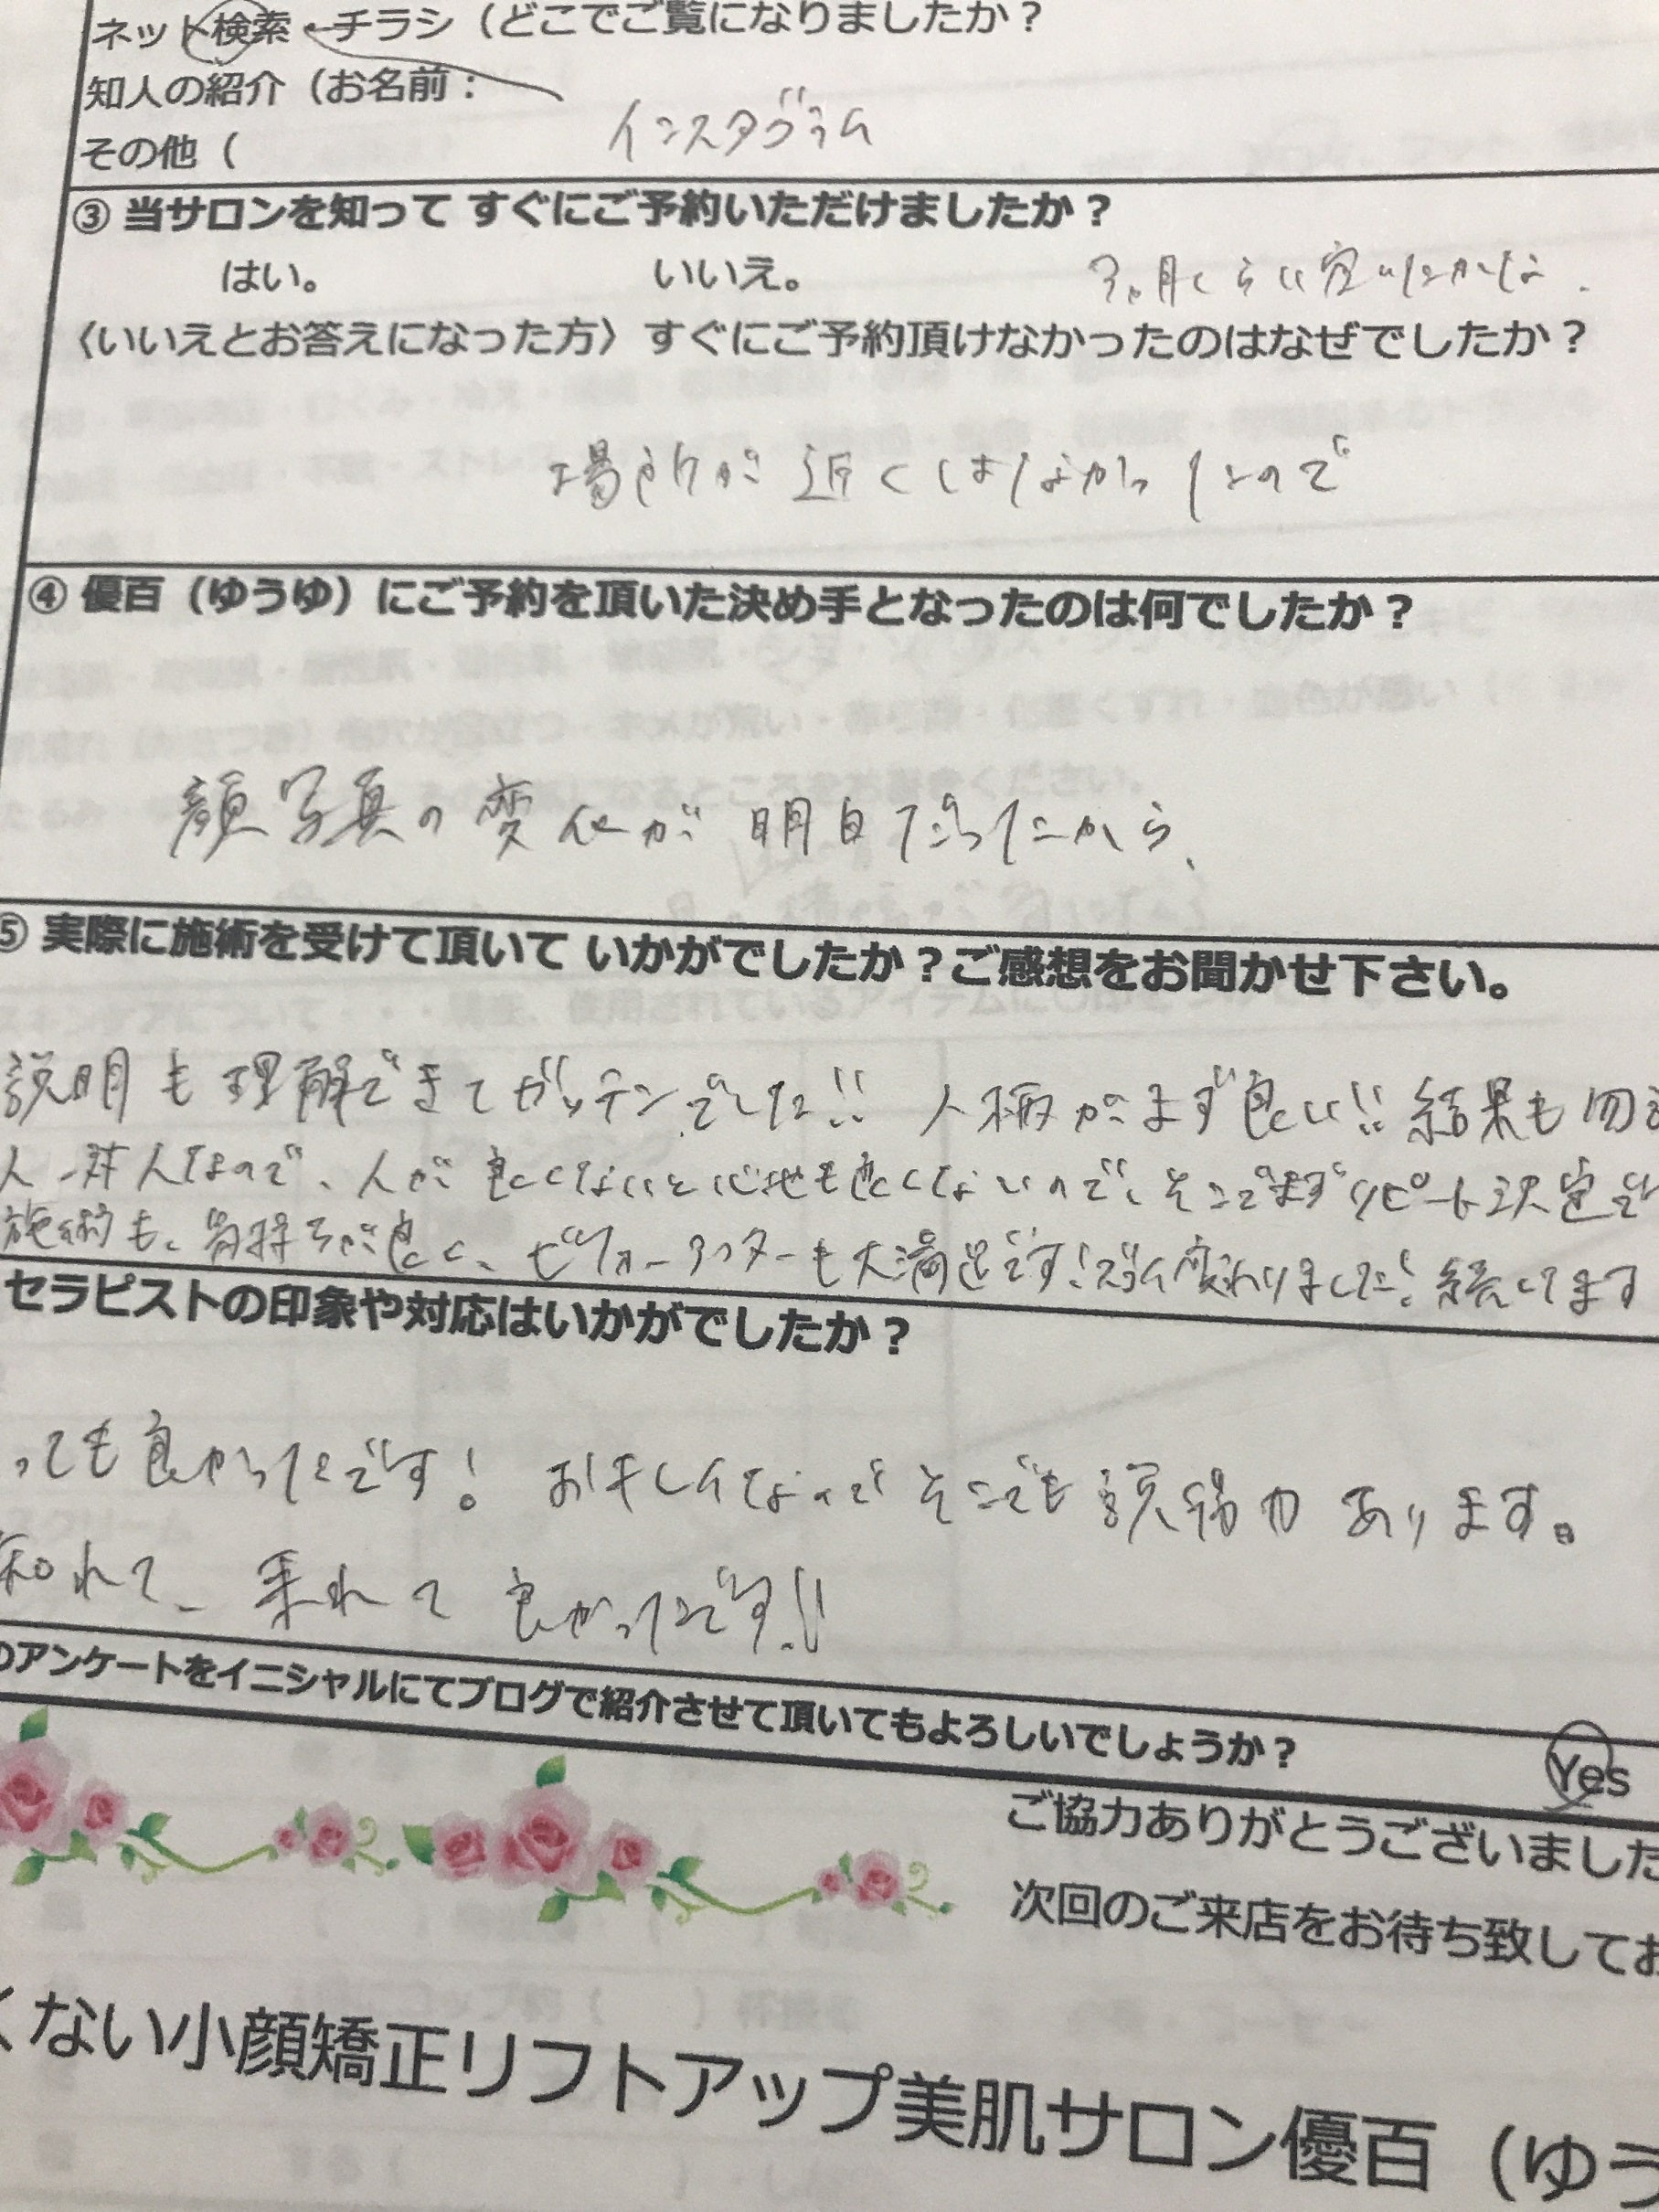 ネット検索・チラシ（どこでご覧になりましたか？
知人の紹介（お名前：
インスタグラム
その他（
③ 当サロンを知って すぐにご予約いただけましたか？
はい。 いいえ。 月くらい空いたかな.
〈いいえとお答えになった方〉すぐにご予約頂けなかったのはなぜでしたか？
場所が近くはなかったので
④ 優百（ゆうゆ）にご予約を頂いた決め手となったのは何でしたか？
顔写真の変化が明白だったから、
⑤ 実際に施術を受けて頂いて いかがでしたか？ご感想をお聞かせ下さい。
説明も理解できてガッテンでした!! 人柄がまず良い!! 結果も勿
人対人なので、人が良くないと心地も良くないので、そこでまずリピート決定で
施術も、気持ちが良く、ビフォーアフターも大満足です！スゴく変わりました！続けてます
セラピストの印象や対応はいかがでしたか？
っても良かったです！ おキレイなのでそこでも説得力あります。
知れて、来れて良かったです!!
のアンケートをイニシャルにてブログで紹介させて頂いてもよろしいでしょうか？ Yes
ご協力ありがとうございました
次回のご来店をお待ち致してお
くない小顔矯正リフトアップ美肌サロン優百（ゆう